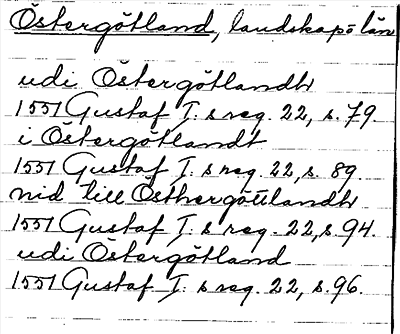 Östergötland, landskap o län
udi Östergötlandh
1551 Gustaf I. s reg. 22, s. 79
i Östergötlandt
1551 Gustaf I. s reg. 22, s. 89.
nid till Östhergöttlandh
1551 Gustaf I. s reg. 22, s. 94.
udi Östergötland
1551 Gustaf I. s reg. 22, s. 96.